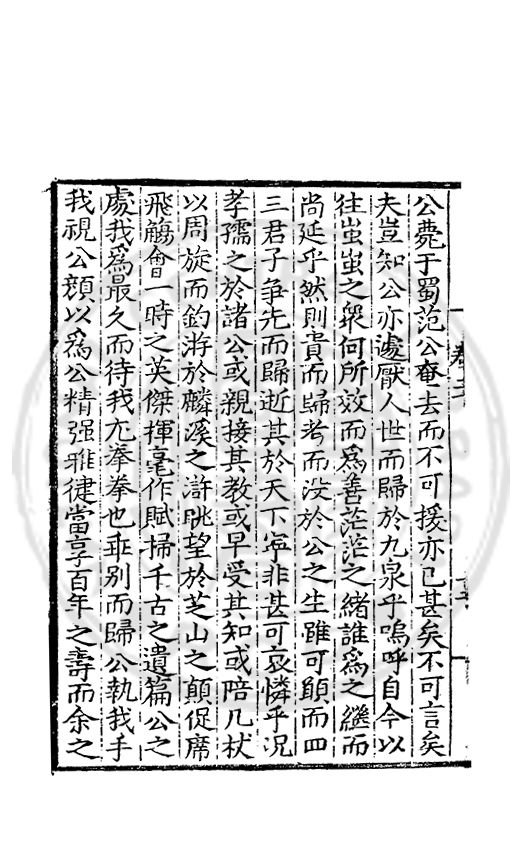 公薨于蜀范公奄去而不可援亦已甚矣不可言矣
夫豈知公亦遽厭人世而歸於九泉乎嗚呼自今以
往蚩蚩之衆何所效而爲善茫茫之緒誰爲之繼而
尚延乎然則貴而歸考而沒於公之生雖可顧而四
三君子爭先而歸逝其於天下寧非甚可哀憐乎況
孝孺之於諸公或親接其教或早受其知或陪几杖
以周旋而鈞游於麟溪之滸眺望於芝山之顛促席
飛觴會一時之英傑揮毫作賦掃千古之遺篇公之
處我爲最久而待我尤拳拳也乖别而歸公執我手
我視公顏以爲公精强雅健當享百年之壽而余之